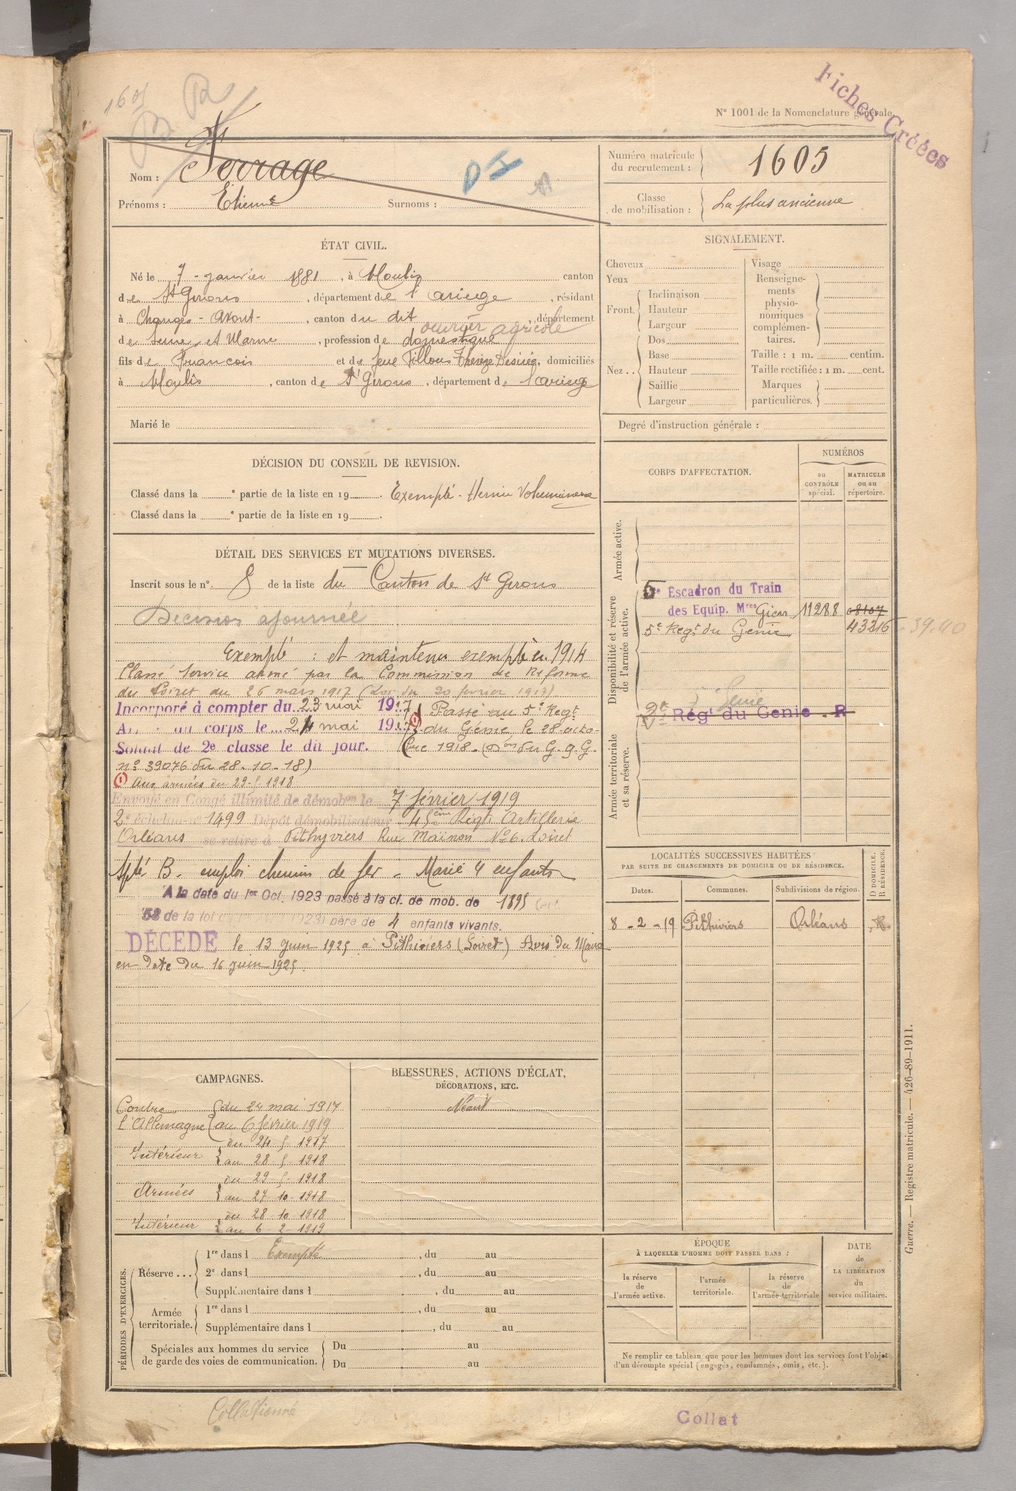 Fiches Créées
1605
N° 1001 de la Nomenclature générale
Nom : Ferrage
Prénoms : Etienne Surnoms :
Numéro matricule du recrutement : 1605
Classe de mobilisation : La plus ancienne
ÉTAT CIVIL.
Né le 7 janvier 1881, à Moulis canton
de St Girons, département de l'ariège, résidant
à canton du dit département
ouvrier agricole
de Seine et Marne, profession de domestique
fils de Francois et de feue Thérèze Désirée, domiciliés
à Moulis, canton de St Girons, département de l'ariège
Marié le
SIGNALEMENT.
Cheveux
Yeux
Front. Inclinaison
Hauteur
Largeur
Nez.. Dos
Base
Hauteur
Saillie
Largeur
Visage
Renseignements physionomiques complémentaires.
Taille : 1 m. centim.
Taille rectifiée : 1 m. cent.
Marques particulières.
Degré d'instruction générale :
DÉCISION DU CONSEIL DE REVISION.
Classé dans la e partie de la liste en 19 Exempté - Hernie Volumineuse
Classé dans la e partie de la liste en 19 .
DÉTAIL DES SERVICES ET MUTATIONS DIVERSES.
Inscrit sous le n° 8 de la liste du Canton de St Girons
Décision ajournée
Exempté : et maintenu exempté en 1914
Classé Service armé par la Commission de Réforme
du Loiret du 26 mars 1917 (Loi du 20 février 1917)
Incorporé à compter du 23 mai 1917 Passé au 5e Regt
au corps le 24 mai 1917 du Génie le 28 octo-
Soldat de 2e classe le dit jour. bre 1918. G.Q.G.
n° 39076 du 28-10-18)
(1) Aux armées du 29-5 1918
Envoyé en Congé illimité de démobon le 7 février 1919
2e échelon n° 1499 Dépôt démobilisateur 45ème Regt Artillerie
Orléans se retire à Pithiviers Rue N° 6. Loiret
Spté B. emploi chemin de fer. Marié 4 enfants
A la date du 1er Oct. 1923 passé à la cl. de mob. de 1895
58 de la loi père de 4 enfants vivants.
DÉCÉDÉ le 13 juin 1925 à Pithiviers (Loiret) Avis du Maire
en date du 16 juin 1925
CORPS D'AFFECTATION.
NUMÉROS
au CONTRÔLE spécial.
MATRICULE ou au répertoire.
Armée active.
Disponibilité et réserve de l'armée active.
5e Escadron du Train
des Equip. Mres 11288 08107
5e Regt du Génie 43216 39.40
5e Génie
Régt du Génie . R
Armée territoriale et sa réserve.
LOCALITÉS SUCCESSIVES HABITÉES
PAR SUITE DE CHANGEMENTS DE DOMICILE OU DE RÉSIDENCE.
Dates. Communes. Subdivisions de région. D DOMICILE. R RÉSIDENCE.
8-2-19 Pithiviers Orléans R.
CAMPAGNES.
Contre l'Allemagne du 24 mai 1917
au 6 février 1919
Intérieur du 24 5 1917
au 28 5 1918
Armées du 29-5-1918
au 27-10-1918
Intérieur du 28-10-1918
au 6-2-1919
BLESSURES, ACTIONS D'ÉCLAT,
DÉCORATIONS, ETC.
Néant
PÉRIODES D'EXERCICES.
Réserve... 1re dans l Exempté , du au
2e dans l , du au
Supplémentaire dans l , du au
Armée territoriale. 1re dans l , du au
Supplémentaire dans l , du au
Spéciales aux hommes du service Du au
de garde des voies de communication. Du au
ÉPOQUE
À LAQUELLE L'HOMME DOIT PASSER DANS :
la réserve de l'armée active.
l'armée territoriale.
la réserve de l'armée territoriale
DATE de LA LIBÉRATION du service militaire.
Ne remplir ce tableau que pour les hommes dont les services font l'objet
d'un décompte spécial (engagés, condamnés, omis, etc.).
Guerre. — Registre matricule. — 426-89-1911.
Collationné
Collat